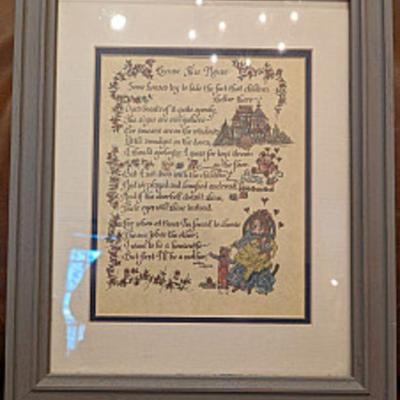 Excuse This House
Some houses try to hide the fact that children
shelter there
Ours boasts of it quite openly,
The signs are everywhere
For smears are on the windows,
Little smudges on the doors,
I should apologize I guess for toys strewn
on the floor.
But I sat down with the children
And we played and laughed and read,
And if the doorbell doesn't shine,
Their eyes will shine instead.
For when at times I'm forced to choose
The one job or the other,
I want to be a housewife
But first I'll be a mother.